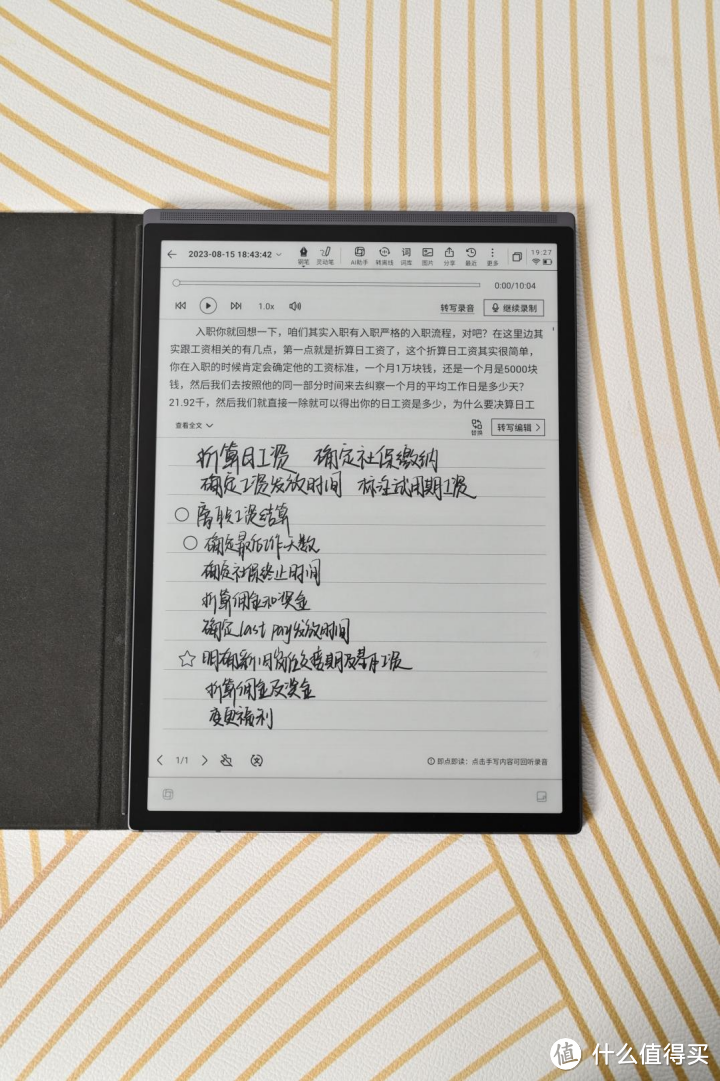 2023-08-15 18:43:42
钢笔 灵动笔 AI助手 转离线 词库 图片 分享 最近 更多
19:27
0:00/10:04
1.0x 转写录音 继续录制
入职你就回想一下，咱们其实入职有入职严格的入职流程，对吧？在这里边其
实跟工资相关的有几点，第一点就是折算日工资了，这个折算日工资其实很简单，
你在入职的时候肯定会确定他的工资标准，一个月1万块钱，还是一个月是5000块
钱，然后我们去按照他的同一部分时间来去纠察一个月的平均工作日是多少天？
21.92千，然后我们就直接一除就可以得出你的日工资是多少，为什么要决算日工
查看全文 替换 转写编辑
折算日工资 确定社保缴纳
确定工资发放时间 标注试用期工资
离职工资结算
确定最后工作天数
确定社保终止时间
折算佣金和奖金
确定last pay发放时间
明确新旧岗位交替期及基月工资
折算佣金及奖金
变更福利
1/1 即点即读：点击手写内容可回听录音
值 什么值得买